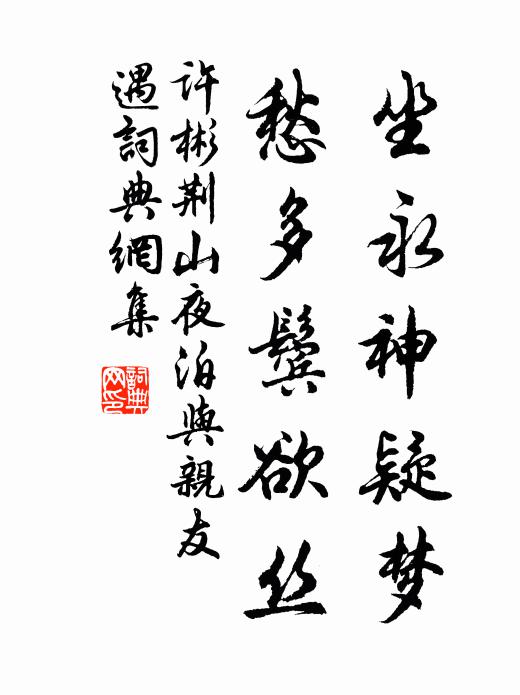 坐永神疑梦
愁多鬓欲丝
許彬荆山夜泊與親友
遇詞典網集
詞典
网印